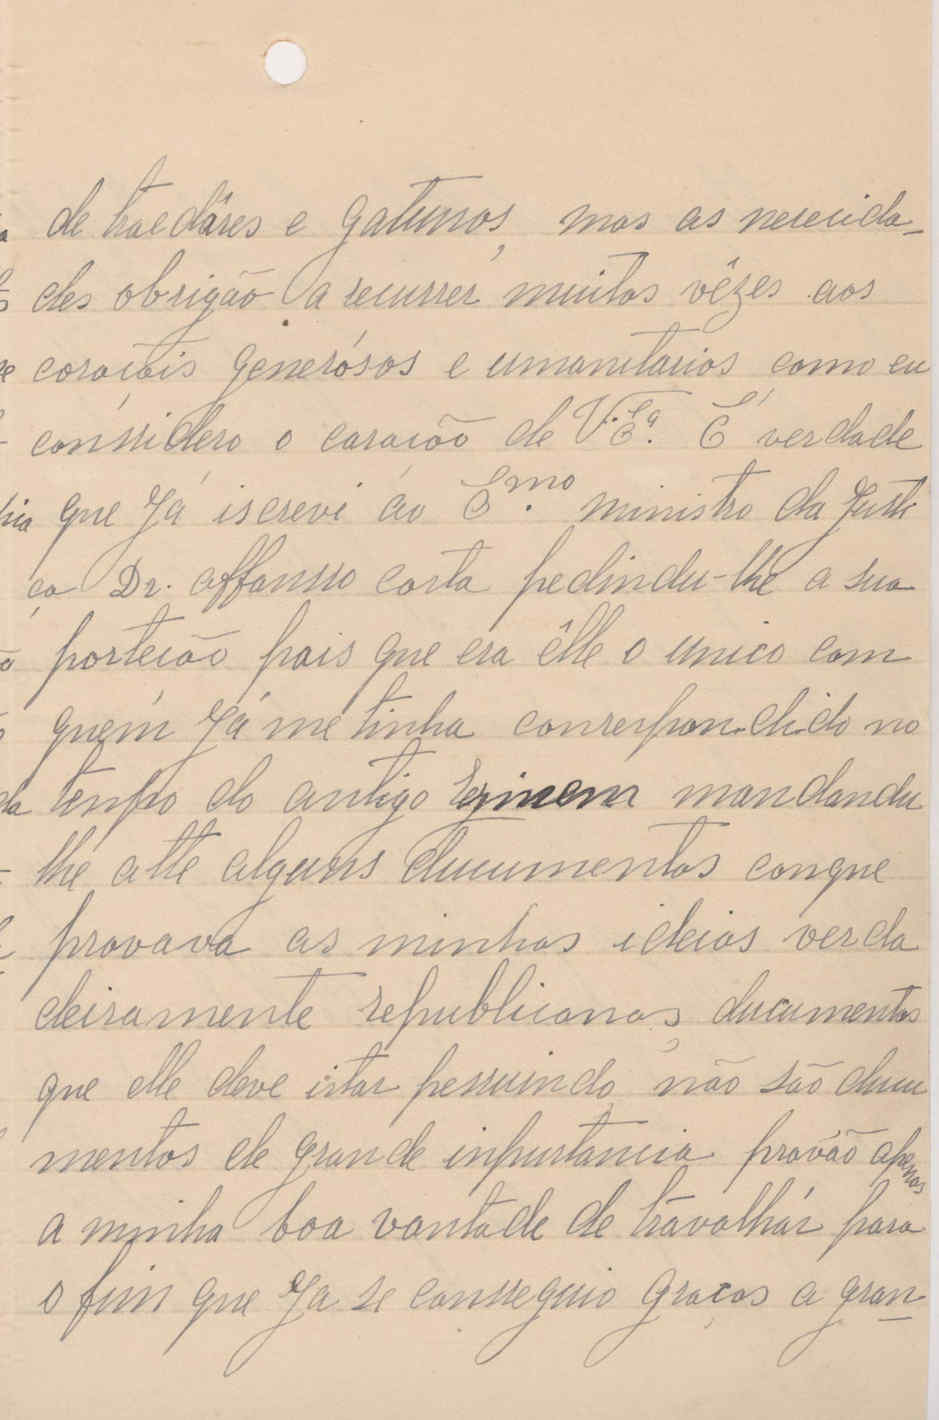 de traedôres e gatunos, mas as nececida-
des obrigão a recurrer muitas vêzes aos
coracõis generósos e umanitarios como eu
conssidero o coracão de V. Ex.ª É verdade
que Já iscrevi áo E.mo ministro da Justi
ça Dr. affonsso costa pedindu-lhe a sua
porteicão pois que era êlle o unico com
quem Já me tinha conrrespondido no
tenpo do antigo regimem mandandu
lhe atte alguns ducumentos conque
provava as minhas ideias verda
deiramente republicanas, ducumentos
que elle deve istar pessuindo, não são ducu
mentos de grande inpurtancia provão apenas
a minha boa vontade de travalhár para
o fim que Ja se consseguio graças a gran-